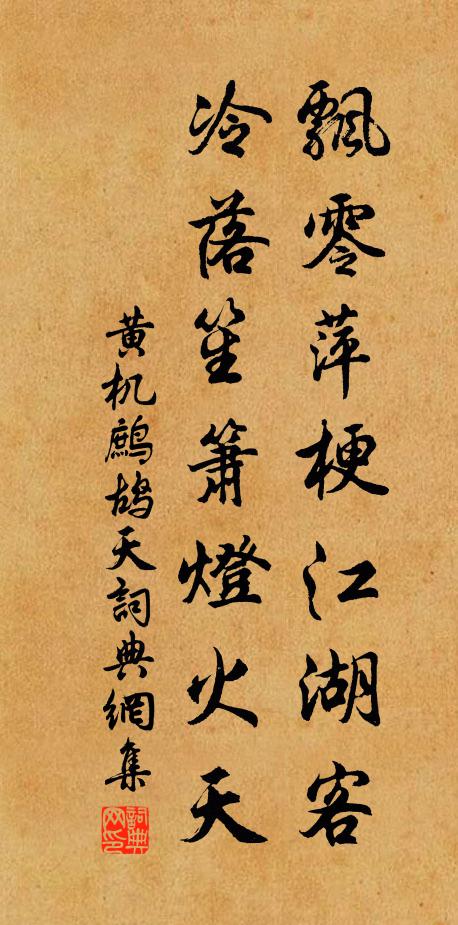 飄零萍梗江湖客
冷落笙簫燈火天
黄机鷓鴣天詞典網集
詞典网印